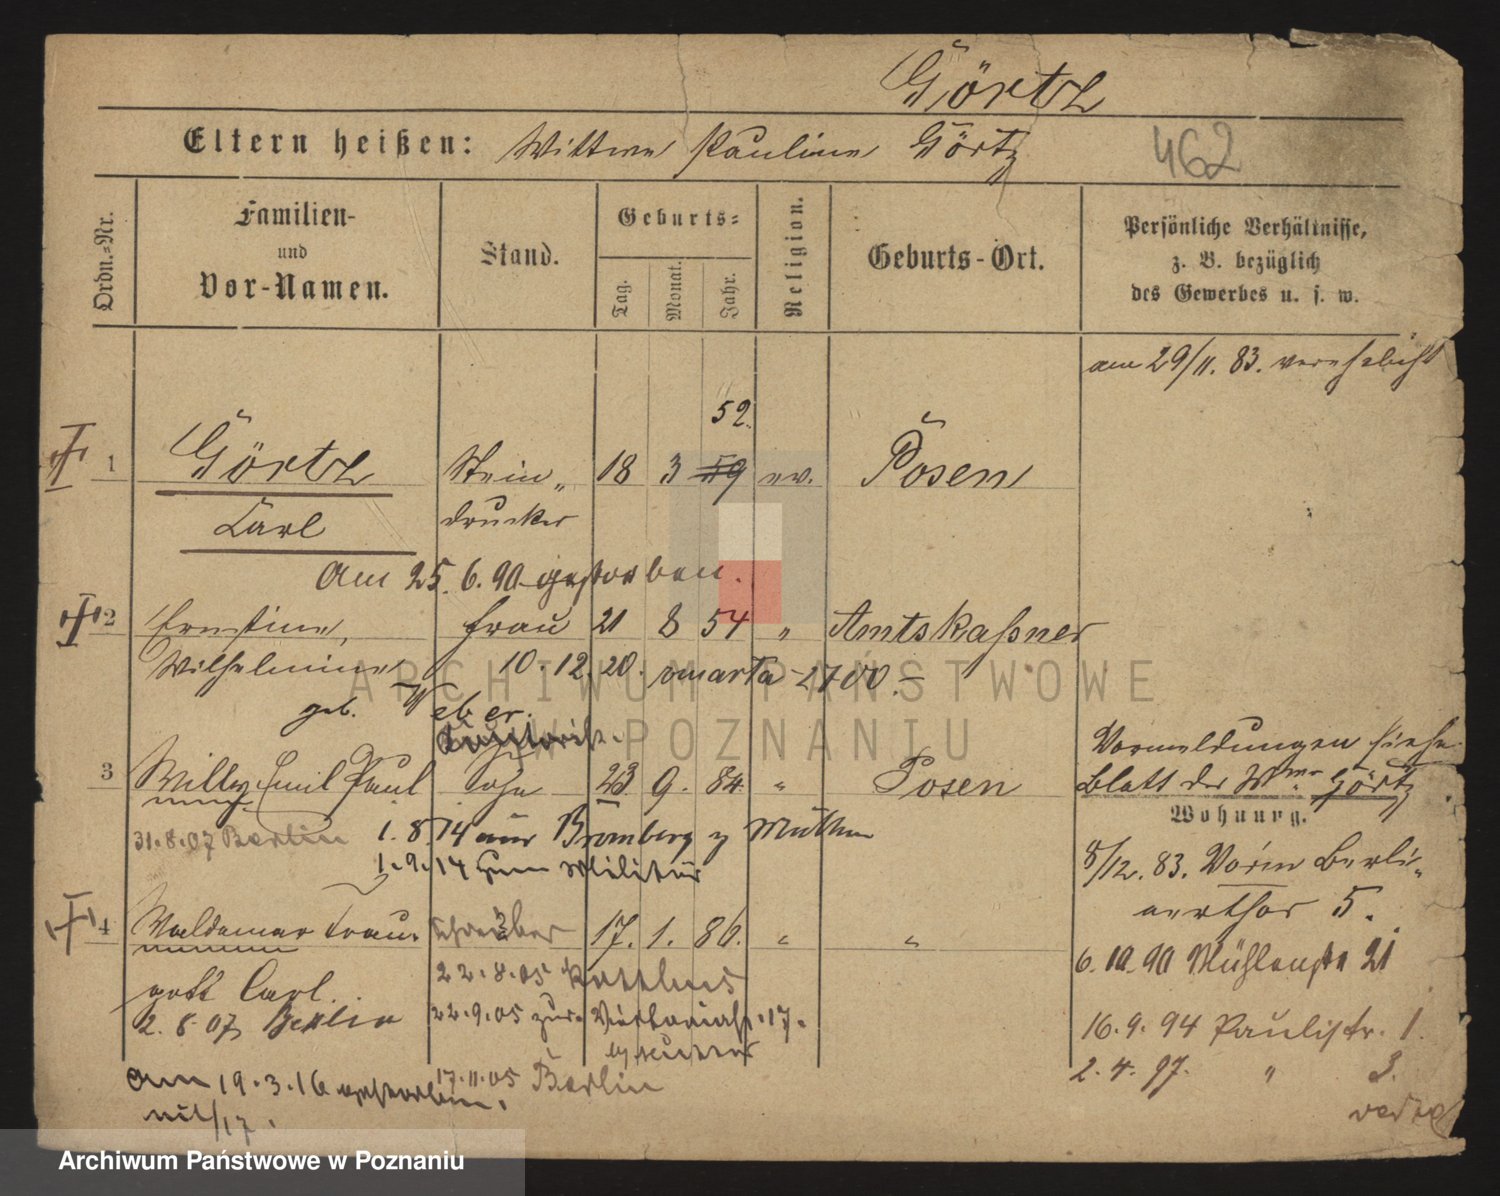 Görtz
Eltern heißen: Wittwe Pauline Görtz
462
Ordn.-Nr.
Familien-
und
Vor-Namen.
Stand.
Geburts-
Tag.
Monat.
Jahr.
Religion.
Geburts-Ort.
Persönliche Verhältnisse,
z. B. bezüglich
des Gewerbes u. s. w.
am 29/11. 83. verehelicht
52.
1 Görtz Stein- 18 3 59 ev. Posen
Carl drucker
am 25. 6. 90 gestorben.
2 Ernstine, Frau 21 8 54 " Amtskaßner
Wilhelmine 10. 12. 20.
geb. Weber.
Vormeldungen siehe
3 Willy Emil Paul Sohn 23. 9. 84. " Posen
Blatt der Wwe. Görtz.
Wohnung.
31.8.07 Berlin 1. 8. 14 aus Bromberg z Mutter
1. 9. 14 zum Militär
8/12. 83. Vor'm Berli-
nerthor 5.
4 Waldemar Trau- Schreiber 17. 1. 86. " "
gott Carl.
22.8.05
6. 10. 90 Mühlenstr 21
2. 8. 07 Berlin
22.9.05 zur. Victoriastr. 17.
16. 9. 94 Paulistr. 1.
2. 4. 97. " 3.
17.11.05 Berlin
am 19. 3. 16 gestorben.
ARCHIWUM PAŃSTWOWE
W POZNANIU
Archiwum Państwowe w Poznaniu